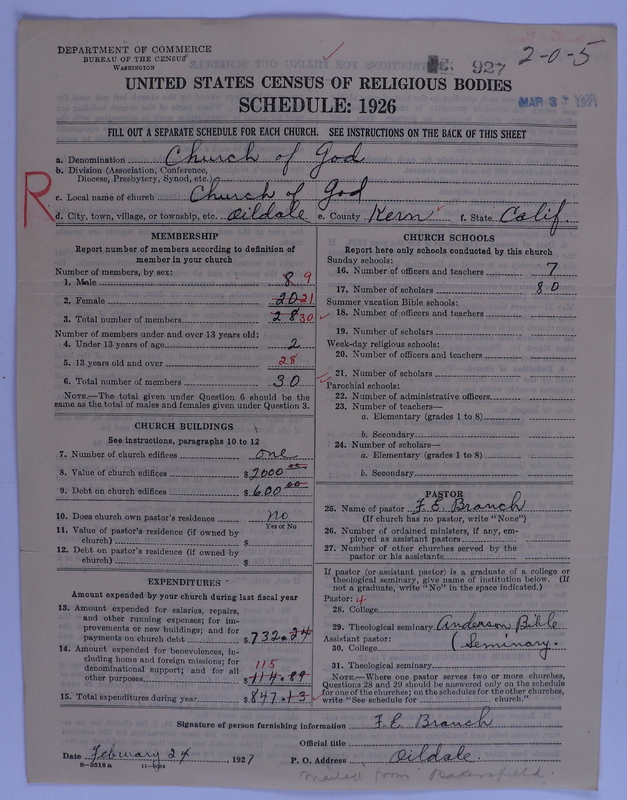 DEPARTMENT OF COMMERCE
BUREAU OF THE CENSUS
WASHINGTON
927
2-0-5
UNITED STATES CENSUS OF RELIGIOUS BODIES
SCHEDULE: 1926
MAR 3 1927
FILL OUT A SEPARATE SCHEDULE FOR EACH CHURCH. SEE INSTRUCTIONS ON THE BACK OF THIS SHEET
R
a. Denomination Church of God
b. Division (Association, Conference, Diocese, Presbytery, Synod, etc.)
c. Local name of church Church of God
d. City, town, village, or township, etc. Oildale e. County Kern f. State Calif.
MEMBERSHIP
Report number of members according to definition of
member in your church
Number of members, by sex:
1. Male 8 9
2. Female 20 21
3. Total number of members 28 30
Number of members under and over 13 years old:
4. Under 13 years of age 2
5. 13 years old and over 28
6. Total number of members 30
NOTE.—The total given under Question 6 should be the
same as the total of males and females given under Question 3.
CHURCH BUILDINGS
See instructions, paragraphs 10 to 12
7. Number of church edifices one
8. Value of church edifices $2000 00
9. Debt on church edifices $600 00
10. Does church own pastor's residence No
Yes or No
11. Value of pastor's residence (if owned by
church) $
12. Debt on pastor's residence (if owned by
church) $
EXPENDITURES
Amount expended by your church during last fiscal year
13. Amount expended for salaries, repairs,
and other running expenses; for im-
provements or new buildings; and for
payments on church debt $732.24
14. Amount expended for benevolences, in-
cluding home and foreign missions; for
denominational support; and for all
other purposes $114.89 115
15. Total expenditures during year $847.13
CHURCH SCHOOLS
Report here only schools conducted by this church
Sunday schools:
16. Number of officers and teachers 7
17. Number of scholars 80
Summer vacation Bible schools:
18. Number of officers and teachers
19. Number of scholars
Week-day religious schools:
20. Number of officers and teachers
21. Number of scholars
Parochial schools:
22. Number of administrative officers
23. Number of teachers—
a. Elementary (grades 1 to 8)
b. Secondary
24. Number of scholars—
a. Elementary (grades 1 to 8)
b. Secondary
PASTOR
25. Name of pastor F. E. Branch
(If church has no pastor, write "None")
26. Number of ordained ministers, if any, em-
ployed as assistant pastors
27. Number of other churches served by the
pastor or his assistants
If pastor (or assistant pastor) is a graduate of a college or
theological seminary, give name of institution below. (If
not a graduate, write "No" in the space indicated.)
Pastor: 4
28. College
29. Theological seminary Anderson Bible
Assistant pastor:
30. College (Seminary.
31. Theological seminary
NOTE.—Where one pastor serves two or more churches,
Questions 28 and 29 should be answered only on the schedule
for one of the churches; on the schedules for the other churches,
write "See schedule for church."
Signature of person furnishing information F. E. Branch
Official title
Date February 24, 1927 P. O. Address Oildale.
8—5518a
mailed from Bakersfield.